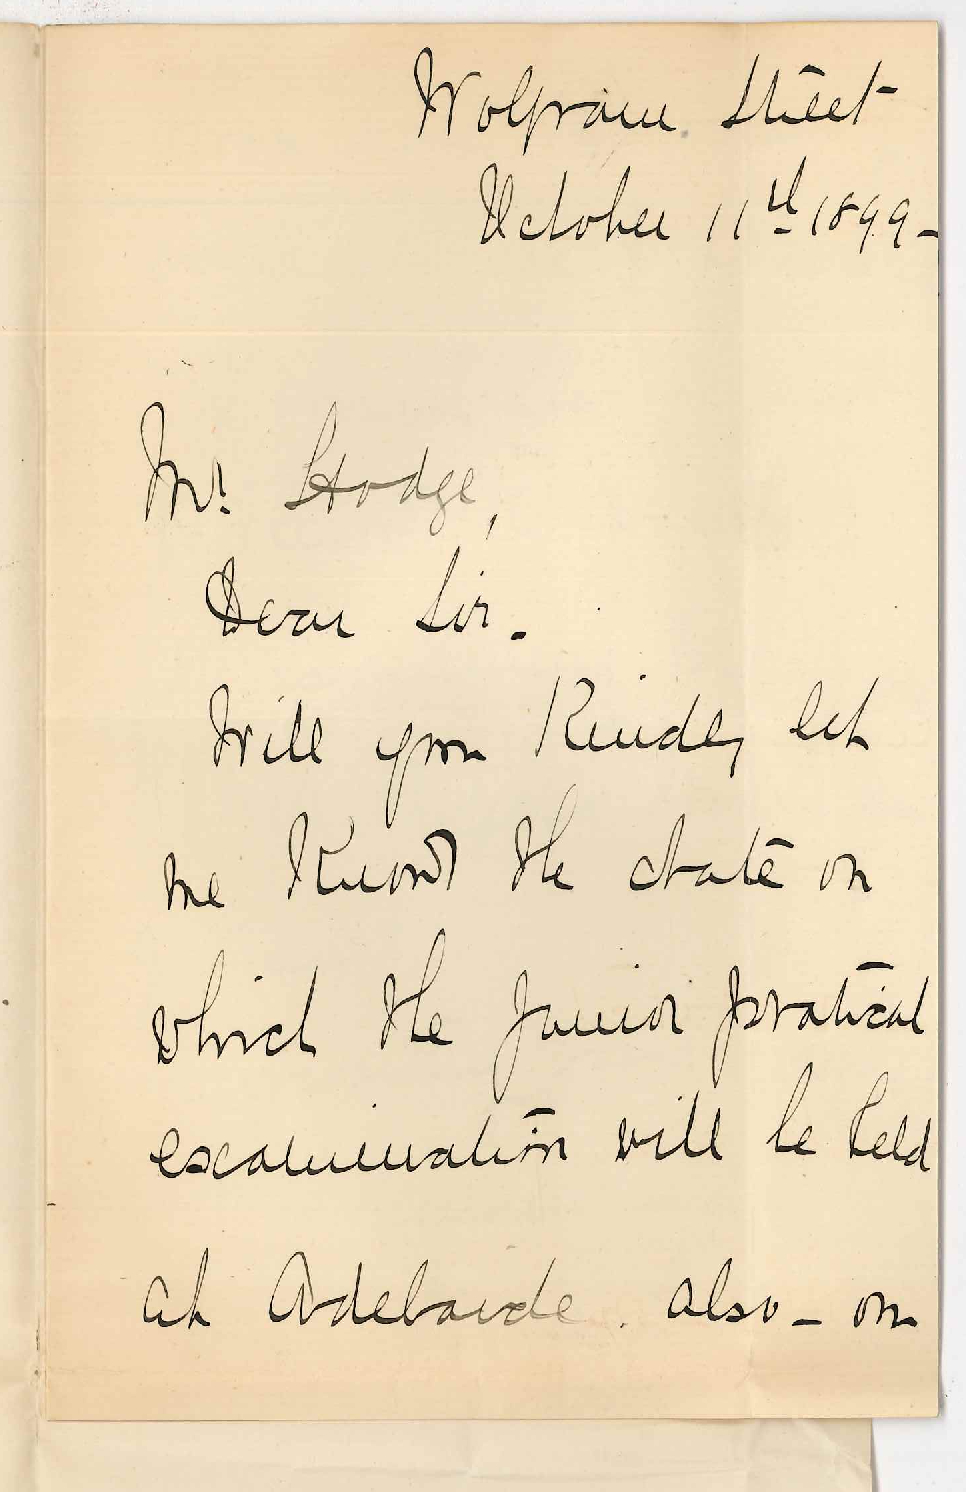 Wolfram Street
October 11th 1899 -
Mr. Hodge,
Dear Sir.
Will you kindly let
me know the date on
which the Junior pratical
examination will be held
at Adelaide. also - on